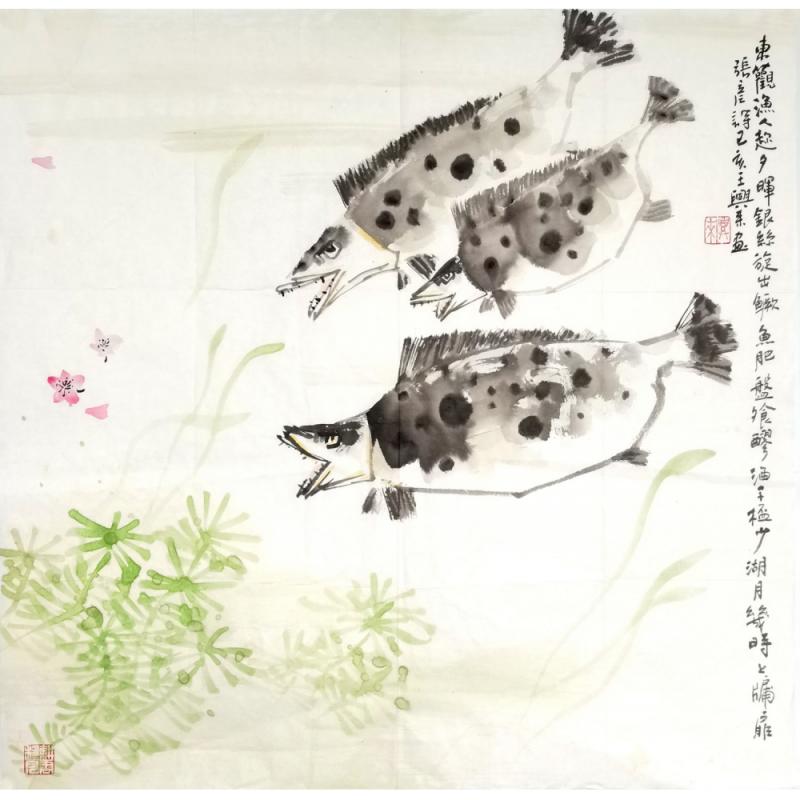 東觀漁人起夕暉銀絲旋出鱖魚肥盤飧醪酒子極少湖月幾時上牖扉
張彥詩己亥王興來畫